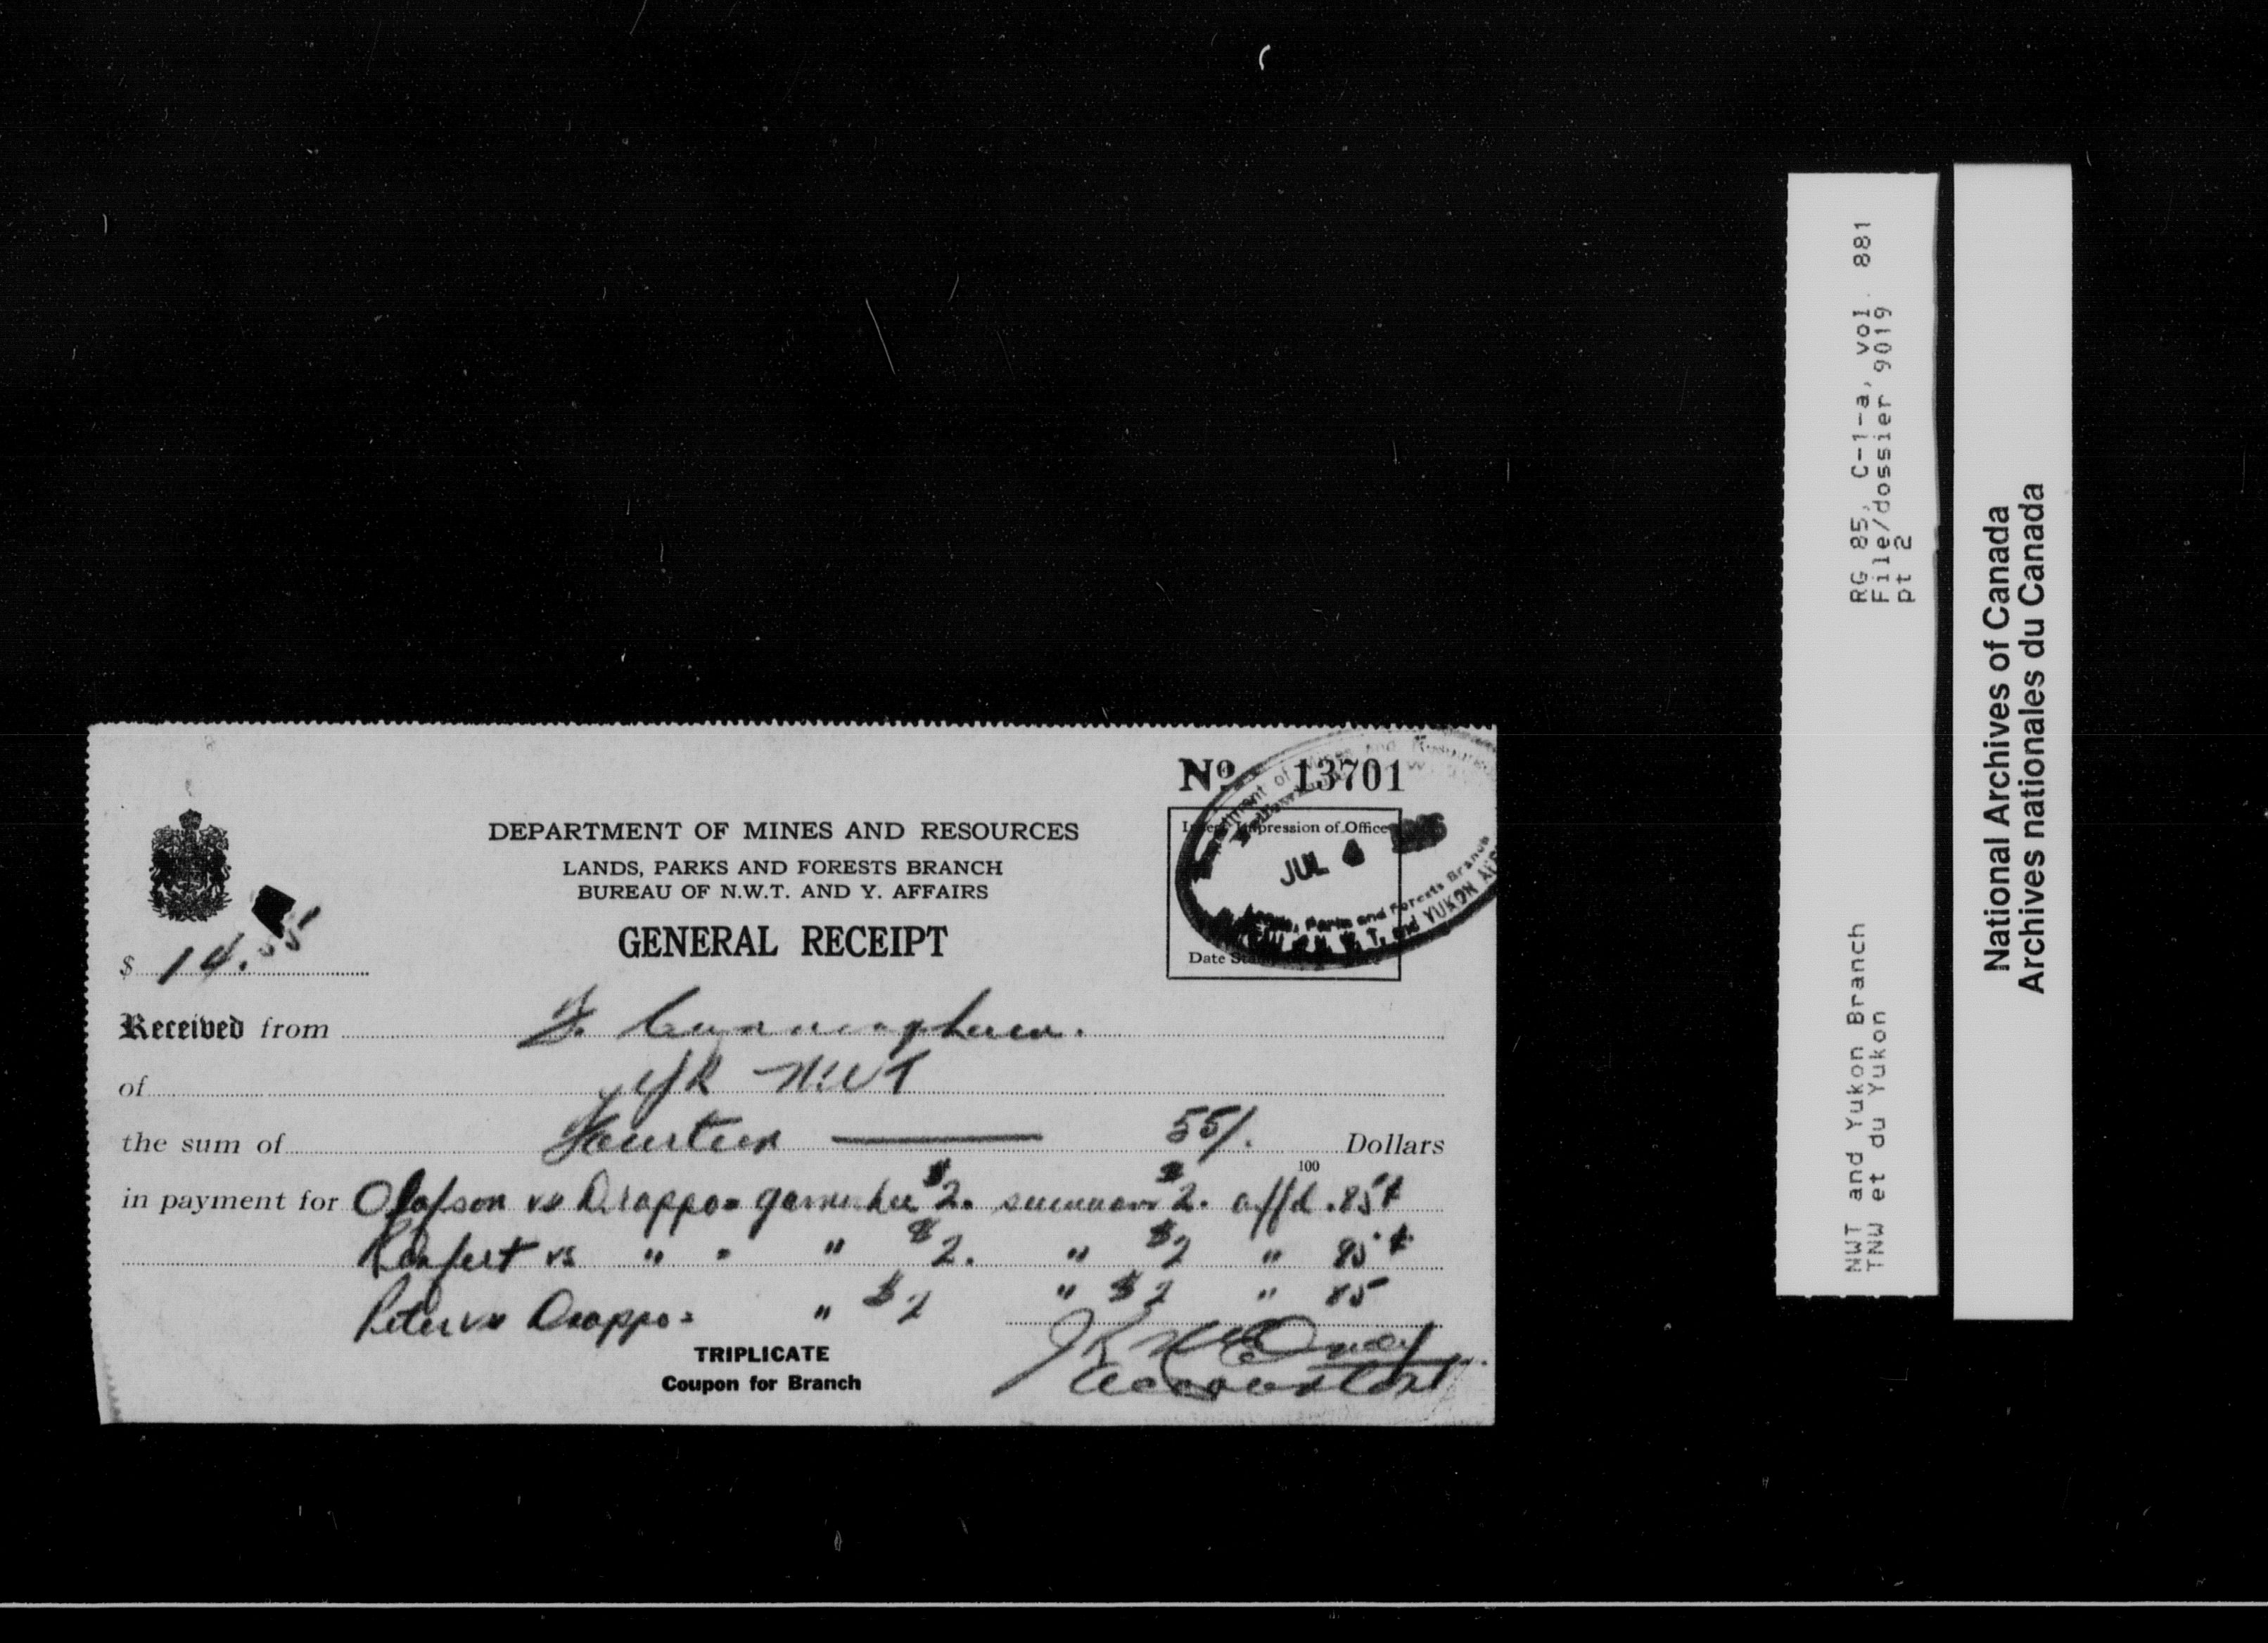 Nº 13701
DEPARTMENT OF MINES AND RESOURCES
LANDS, PARKS AND FORESTS BRANCH
BUREAU OF N.W.T. AND Y. AFFAIRS
GENERAL RECEIPT
Insert Impression of Office
JUL 4
Parks and Forests Branch
N. W. T. and YUKON
Date
$ 14.55
Received from F. Cunningham.
of Y/K N.W.T
the sum of Fourteen 55/. 100 Dollars
in payment for Olafson vs Drappo = garnishee $2. summons $2. affd .85¢
vs " = " $2. " $2 " 85¢
Peter vs Drappo = " $2 " $2 " 85
Accountant
TRIPLICATE
Coupon for Branch
RG 85, C-1-a, vol. 881
File/dossier 9019
pt 2
NWT and Yukon Branch
TNW et du Yukon
National Archives of Canada
Archives nationales du Canada